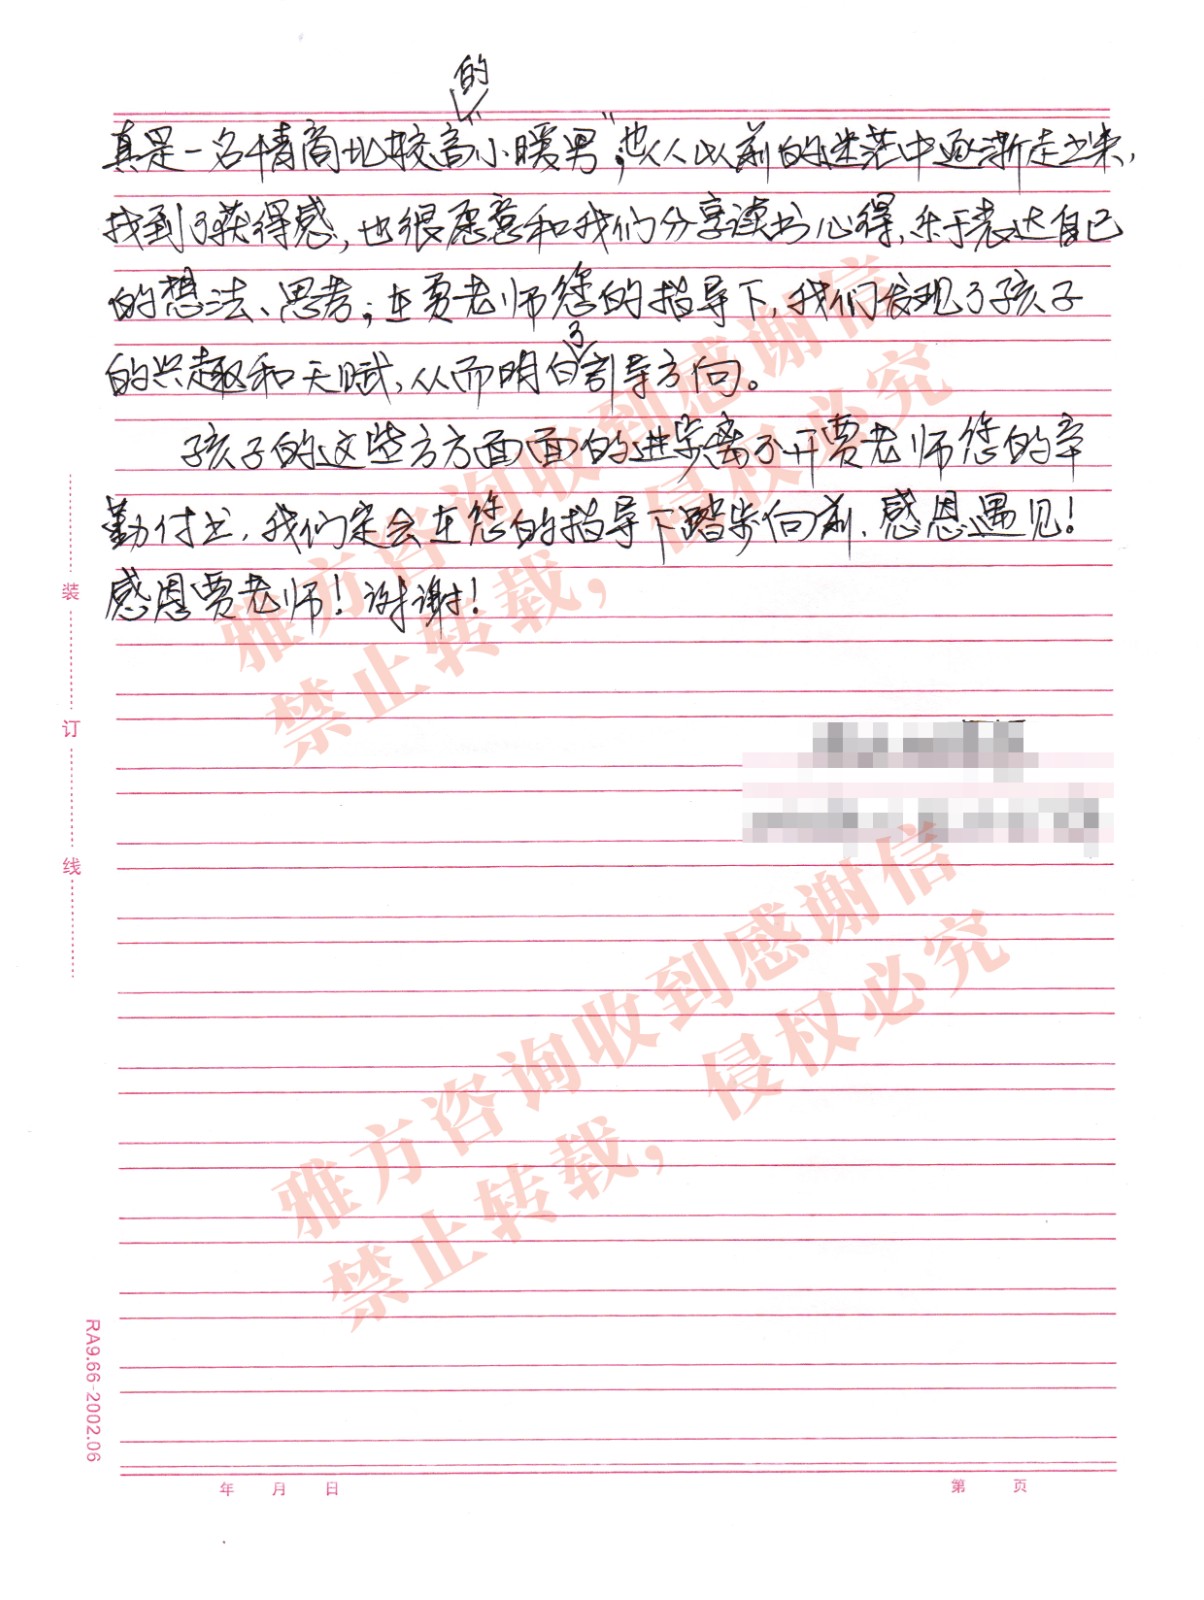 的
真是一名情商比较高“小暖男”;他从以前的迷茫中逐渐走出来,
找到了获得感,也很愿意和我们分享读书心得,乐于表达自己
的想法、思考;在贾老师您的指导下,我们发现了孩子
了
的兴趣和天赋,从而明白引导方向。
孩子的这些方方面面的进步离不开贾老师您的辛
勤付出,我们定会在您的指导下踏步向前,感恩遇见!
感恩贾老师!谢谢!
雅方咨询收到感谢信
禁止转载,侵权必究
雅方咨询收到感谢信
禁止转载,侵权必究
装
订
线
RA9.66-2002.06
年 月 日
第 页